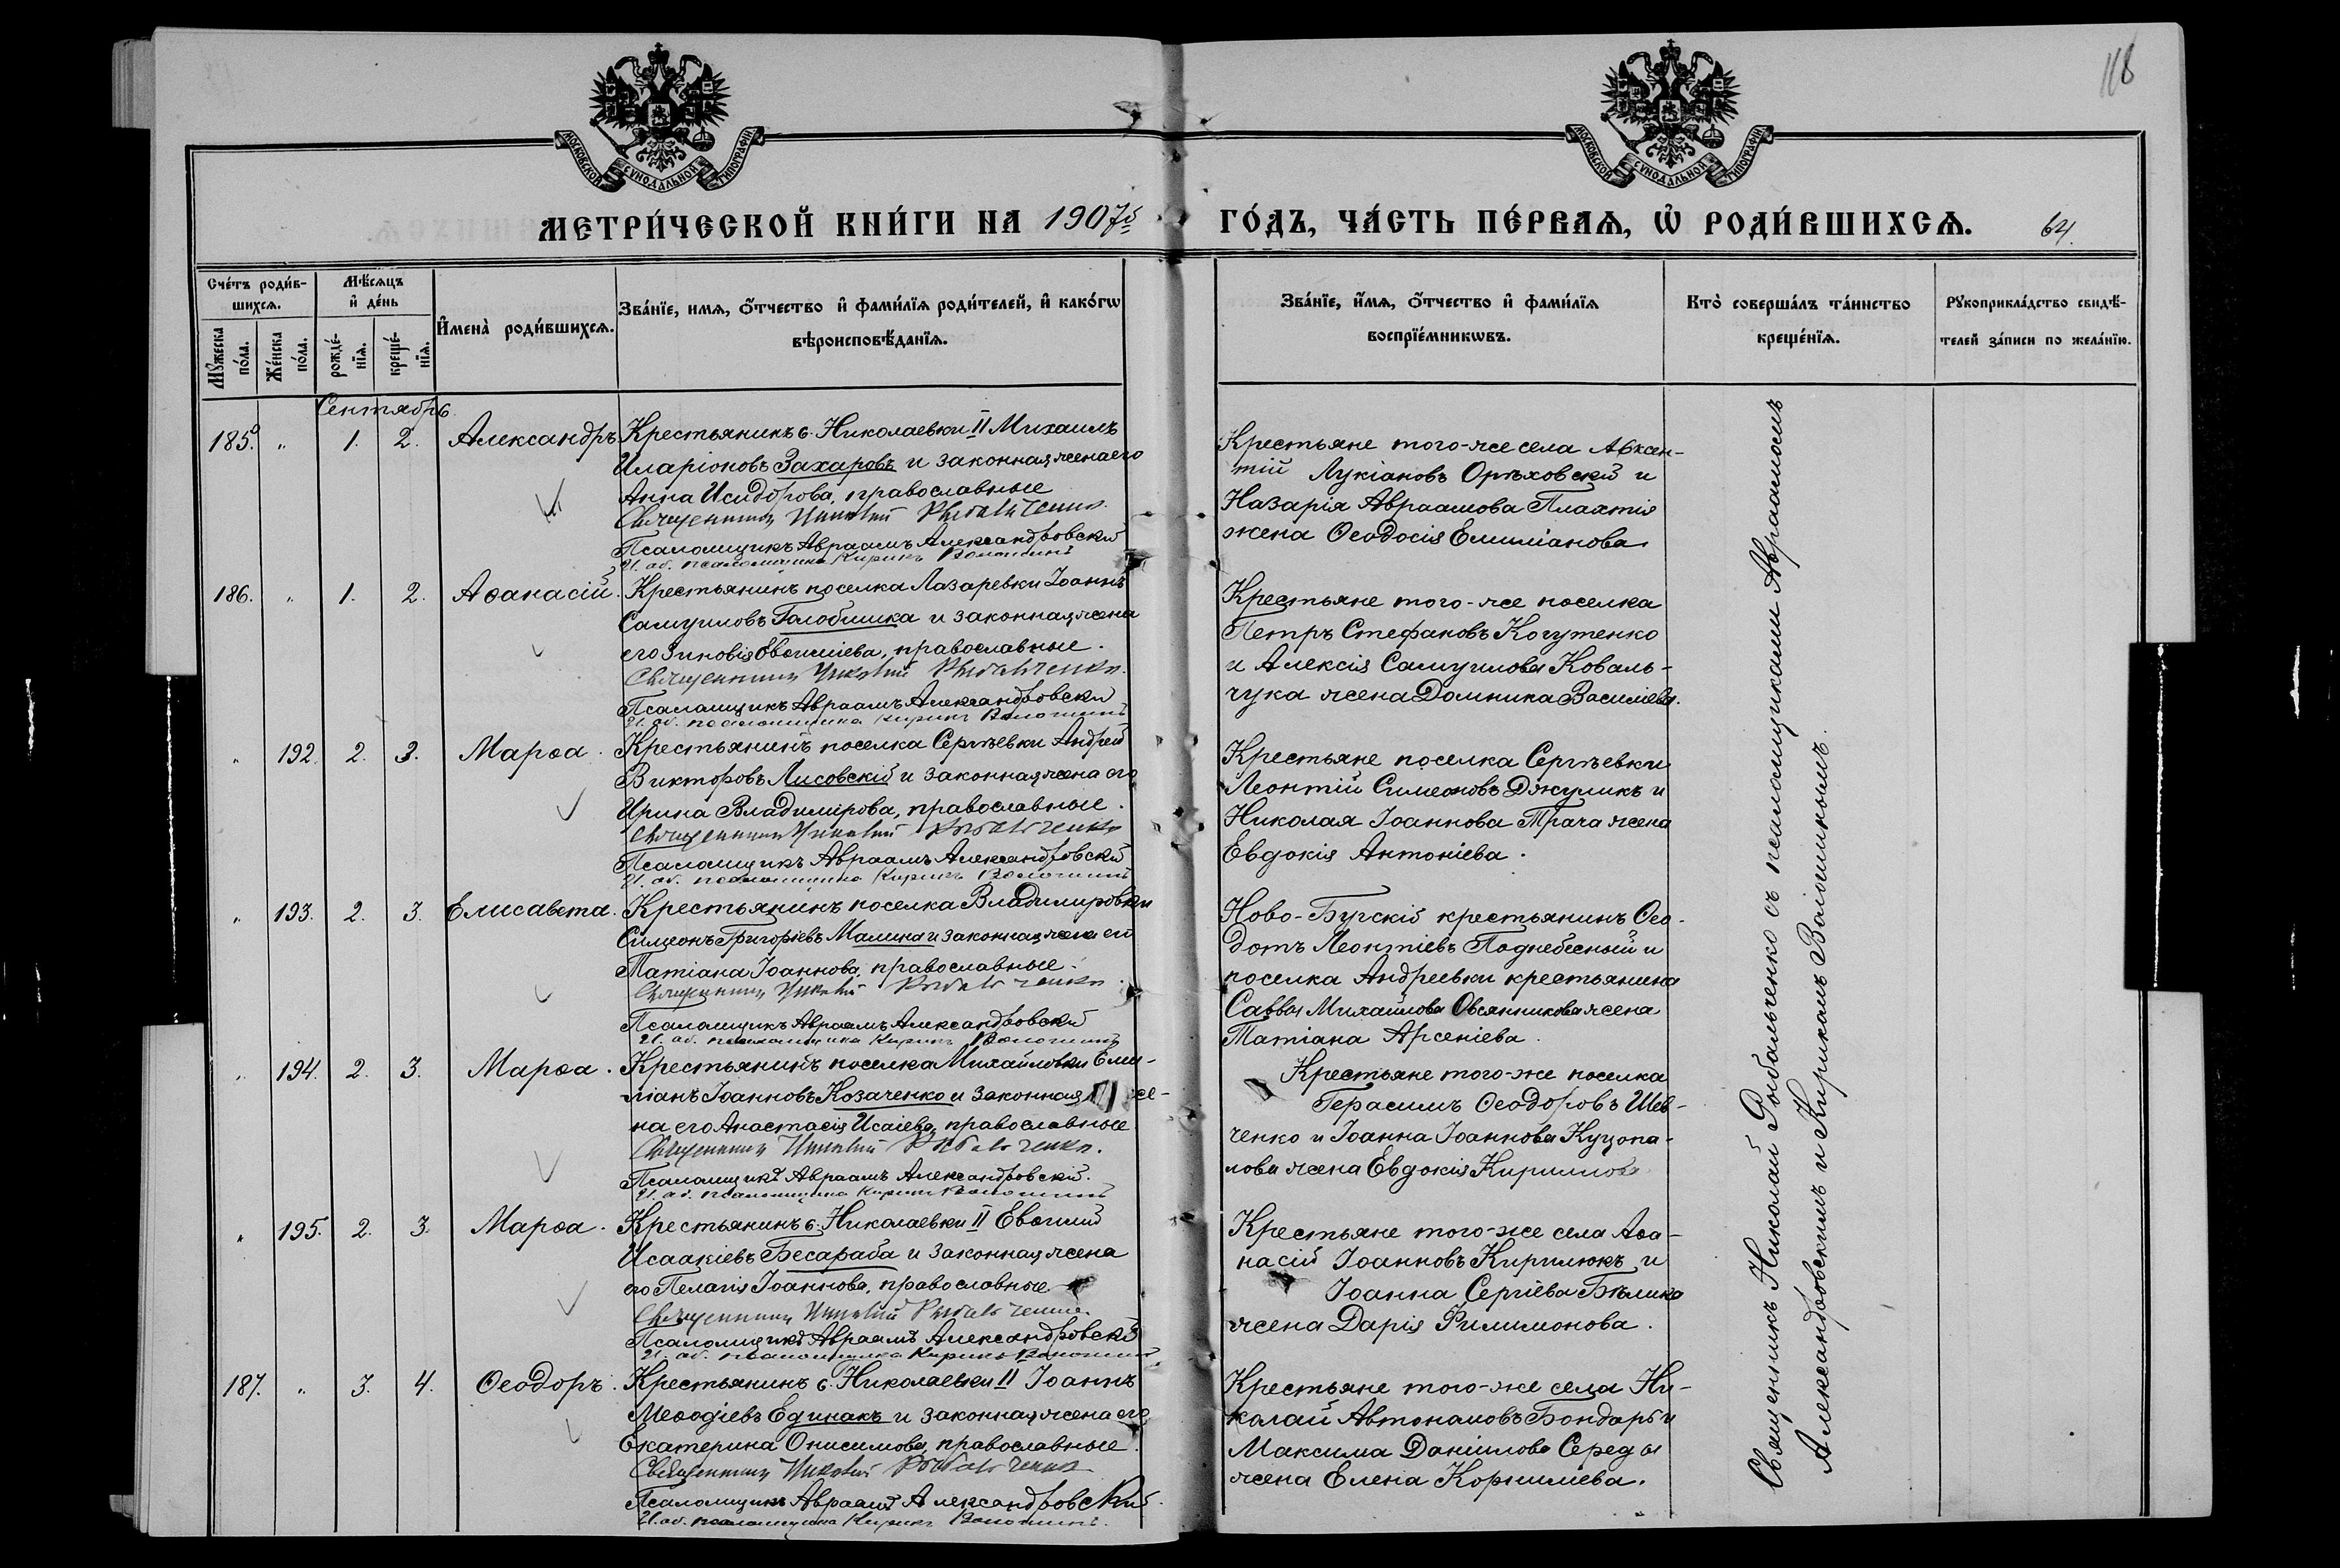 118
МОСКОВСКОЙ СУНОДАЛЬНОЙ ТУПОГРАФІИ
МОСКОВСКОЙ СУНОДАЛЬНОЙ ТУПОГРАФІИ
МЕТРИ́ЧЕСКОЙ КНИ́ГИ НА 1907й
ГО́ДЪ, ЧА́СТЬ ПЕ́РВАѦ, Ѡ҆ РОДИ́ВШИХСѦ. 64.
Сче́тъ роди́в-
шихсѧ.
Мꙋжеска по́ла.
Же́нска по́ла.
Мѣ́сѧцъ и҆ де́нь
рожде́-
нїѧ.
креще́-
нїѧ.
И҆мена̀ роди́вшихсѧ.
Зва́нїе, имѧ, ѻ҆́тчество и҆ фами́лїѧ роди́телей, и҆ како́гѡ
вѣроисповѣ́данїѧ.
Зва́нїе, и҆́мѧ, ѻ҆́тчество и҆ фами́лїѧ
воспрїе́мникѡвъ.
Кто̀ соверша́лъ та́инство
креще́нїѧ.
Рꙋкоприкла́дство свидѣ́-
телей за́писи по жела́нїю.
Сентябрь.
185. " 1. 2. Александръ
Крестьянинъ с. Николаевки II Михаилъ
Иларіоновъ Захаровъ и законная жена его
Анна Исидорова, православные
Священникъ Николай Рыбальченко.
Псаломщикъ Авраамъ Александровскій
И. об. псаломщика Кирикъ Волошинъ
Крестьяне того-же села Авксен-
тій Лукіановъ Орѣховскій и
Назарія Авраамова Плахтія
жена Ѳеодосія Емиліанова
186. " 1. 2. Аѳанасій.
Крестьянинъ поселка Лазаревки Іоаннъ
Самуиловъ Голобишка и законная жена
его Зиновія Евѳиміева, православные.
Священникъ Николай Рыбальченко.
Псаломщикъ Авраамъ Александровскій
И. об. псаломщика Кирикъ Волошинъ
Крестьяне того-же поселка
Петръ Стефановъ Когутенко
и Алексія Самуилова Коваль-
чука жена Домника Василіева.
" 192. 2. 3. Марѳа.
Крестьянинъ поселка Сергѣевки Андрей
Викторовъ Лисовскій и законная жена его
Ирина Владимірова, православные.
Священникъ Николай Рыбальченко
Псаломщикъ Авраамъ Александровскій
И. об. псаломщика Кирикъ Волошинъ
Крестьяне поселка Сергѣевки
Леонтій Симеоновъ Джуликъ и
Николая Іоаннова Трача жена
Евдокія Антоніева.
" 193. 2. 3. Елисавета.
Крестьянинъ поселка Владимировки
Симеонъ Григоріевъ Малина и законная жена его
Татіана Іоаннова, православные.
Священникъ Николай Рыбальченко.
Псаломщикъ Авраамъ Александровскій
И. об. псаломщика Кирикъ Волошинъ
Ново-Бугскій крестьянинъ Ѳео-
дотъ Леонтіевъ Поднебесный и
поселка Андреевки крестьянина
Саввы Михайлова Овсянникова жена
Татіана Арсеніева.
" 194. 2. 3. Марѳа.
Крестьянинъ поселка Михайловки Еми-
ліанъ Іоанновъ Козаченко и законная же-
на его Анастасія Исаіева, православные
Священникъ Николай Рыбальченко.
Псаломщикъ Авраамъ Александровскій.
И. об. псаломщика Кирикъ Волошинъ
Крестьяне того-же поселка
Герасимъ Ѳеодоровъ Шев-
ченко и Іоанна Іоаннова Куцопа-
лова жена Евдокія Кириллова
" 195. 2. 3. Марѳа.
Крестьянинъ с. Николаевки II Евѳимій
Исаакіевъ Бесараба и законная жена
его Пелагія Іоаннова, православные.
Священникъ Николай Рыбальченко.
Псаломщикъ Авраамъ Александровскій
И. об. псаломщика Кирикъ Волошинъ
Крестьяне того-же села Аѳа-
насій Іоанновъ Кирилюкъ и
Іоанна Сергіева Бѣлика
жена Дарія Филимонова.
187. " 3. 4. Ѳеодоръ.
Крестьянинъ с. Николаевки II Іоаннъ
Меѳодіевъ Единакъ и законная жена его
Екатерина Онисимова, православные.
Священникъ Николай Рыбальченко
Псаломщикъ Авраамъ Александровскій.
И. об. псаломщика Кирикъ Волошинъ.
Крестьяне того-же села Ни-
колай Автономовъ Бондарь и
Максима Даніилова Середы
жена Елена Корниліева.
Священникъ Николай Рыбальченко съ псаломщиками Авраамомъ
Александровскимъ и Кирикомъ Волошинымъ.